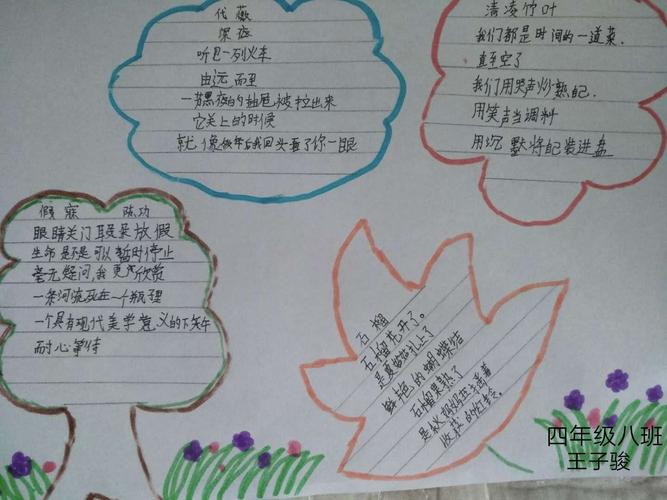 代薇
黑夜
听见一列火车
由远而至
一节黑夜的抽屉被拉出来
它关上的时候
就像似年后我回头看了你一眼
清凌竹叶
我们都是时间的一道菜.
直至空了
我们用哭声炒熟自己.
用笑声当调料
用沉默将自己装进盘
假寐 陈功
眼睛关门耳朵放假
生命是不是可以暂时停止
毫无疑问,我更欣赏
一条河流死在一个瓶里
一个具有现代美学意义的下午
耐心等待
石榴
石榴花开了。
是夏姑娘扎上了
鲜艳的蝴蝶结
石榴果熟了
是秋妈妈在
收获的灯笼。
四年级八班
王子骏